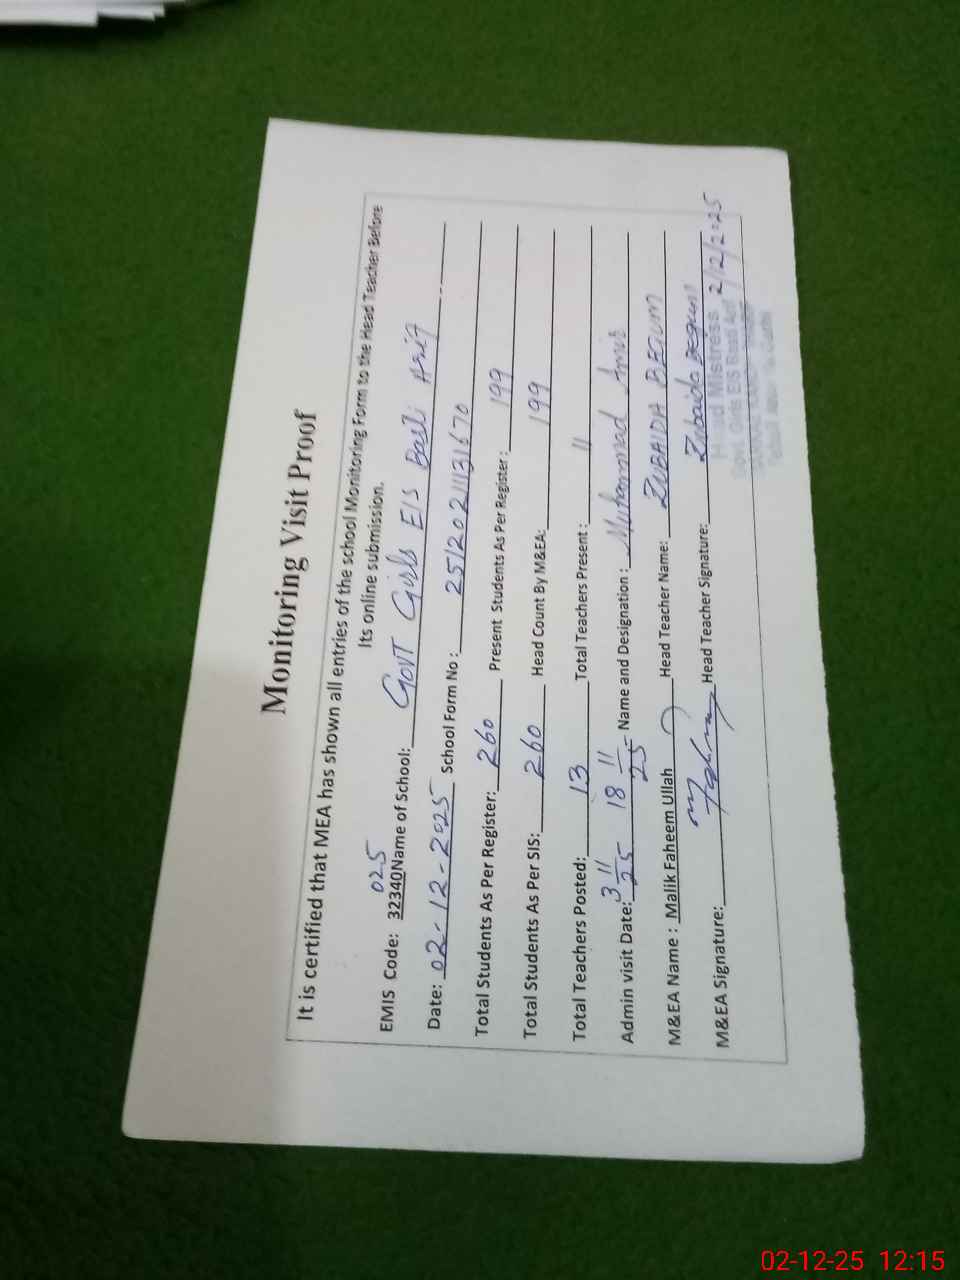 Monitoring Visit Proof
It is certified that MEA has shown all entries of the school Monitoring Form to the Head Teacher Before
Its online submission.
EMIS Code: 32340025 Name of School: GOVT Girls EIS Basti Arif
Date: 02-12-2025 School Form No: 25120211131670
Total Students As Per Register: 260 Present Students As Per Register: 199
Total Students As Per SIS: 260 Head Count By M&EA: 199
Total Teachers Posted: 13 Total Teachers Present: 11
Admin visit Date: 3 11/25 18 11/25 Name and Designation: Muhammad Amir
M&EA Name: Malik Faheem Ullah Head Teacher Name: ZUBAIDA BEGUM
M&EA Signature: Head Teacher Signature: Zubaida BEGUM
Head Mistress 2/12/2025
Govt. Girls EIS Basti Arif
02-12-25 12:15